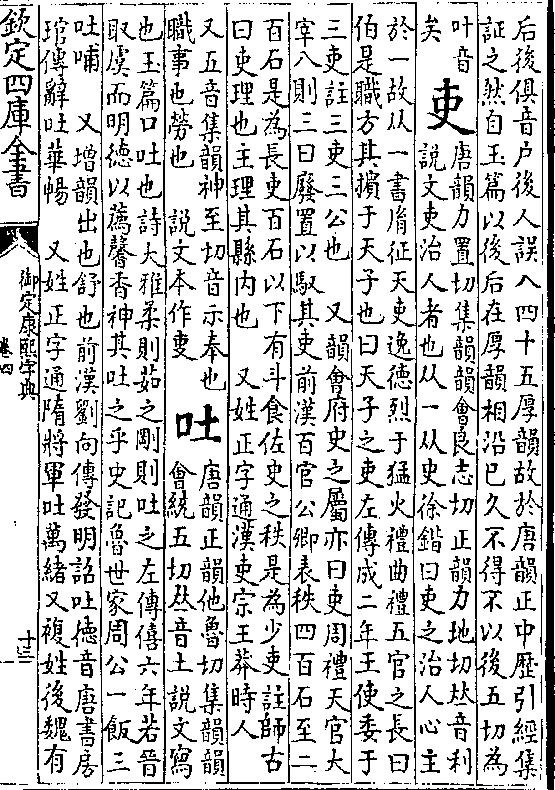 后後俱音戸後人誤入四十五厚韻故於唐韻正中歴引經集
証之然自玉篇以後后在厚韻相沿已久不得不以後五切為
叶音
矣
吏
唐韻力置切集韻韻會良志切正韻力地切𠀤音利
說文吏治人者也从一从史徐鍇曰吏之治人心主
於一故从一書胤征天吏逸德烈于猛火禮曲禮五官之長曰
伯是職方其擯于天子也曰天子之吏左傳成二年王使委于
三吏註三吏三公也 又韻會府史之屬亦曰吏周禮天官大
宰八則三曰廢置以馭其吏前漢百官公卿表秩四百石至二
百石是為長吏百石以下有斗食佐史之秩是為少吏註師古
曰吏理也主理其縣内也 又姓正字通漢吏宗王莽時人
又五音集韻神至切音示奉也
職事也勞也 說文本作㕝
吐
唐韻正韻他魯切集韻韻
會統五切𠀤音土說文寫
也玉篇口吐也詩大雅柔則茹之剛則吐之左傳僖六年若晉
取虞而明德以薦馨香神其吐之乎史記魯世家周公一飯三
吐哺 又增韻出也舒也前漢劉向傳發明詔吐德音唐書房
琯傳辭吐華暢 又姓正字通隋將軍吐萬緒又複姓後魏有
欽定四庫全書
御定康熙字典
卷四
十三